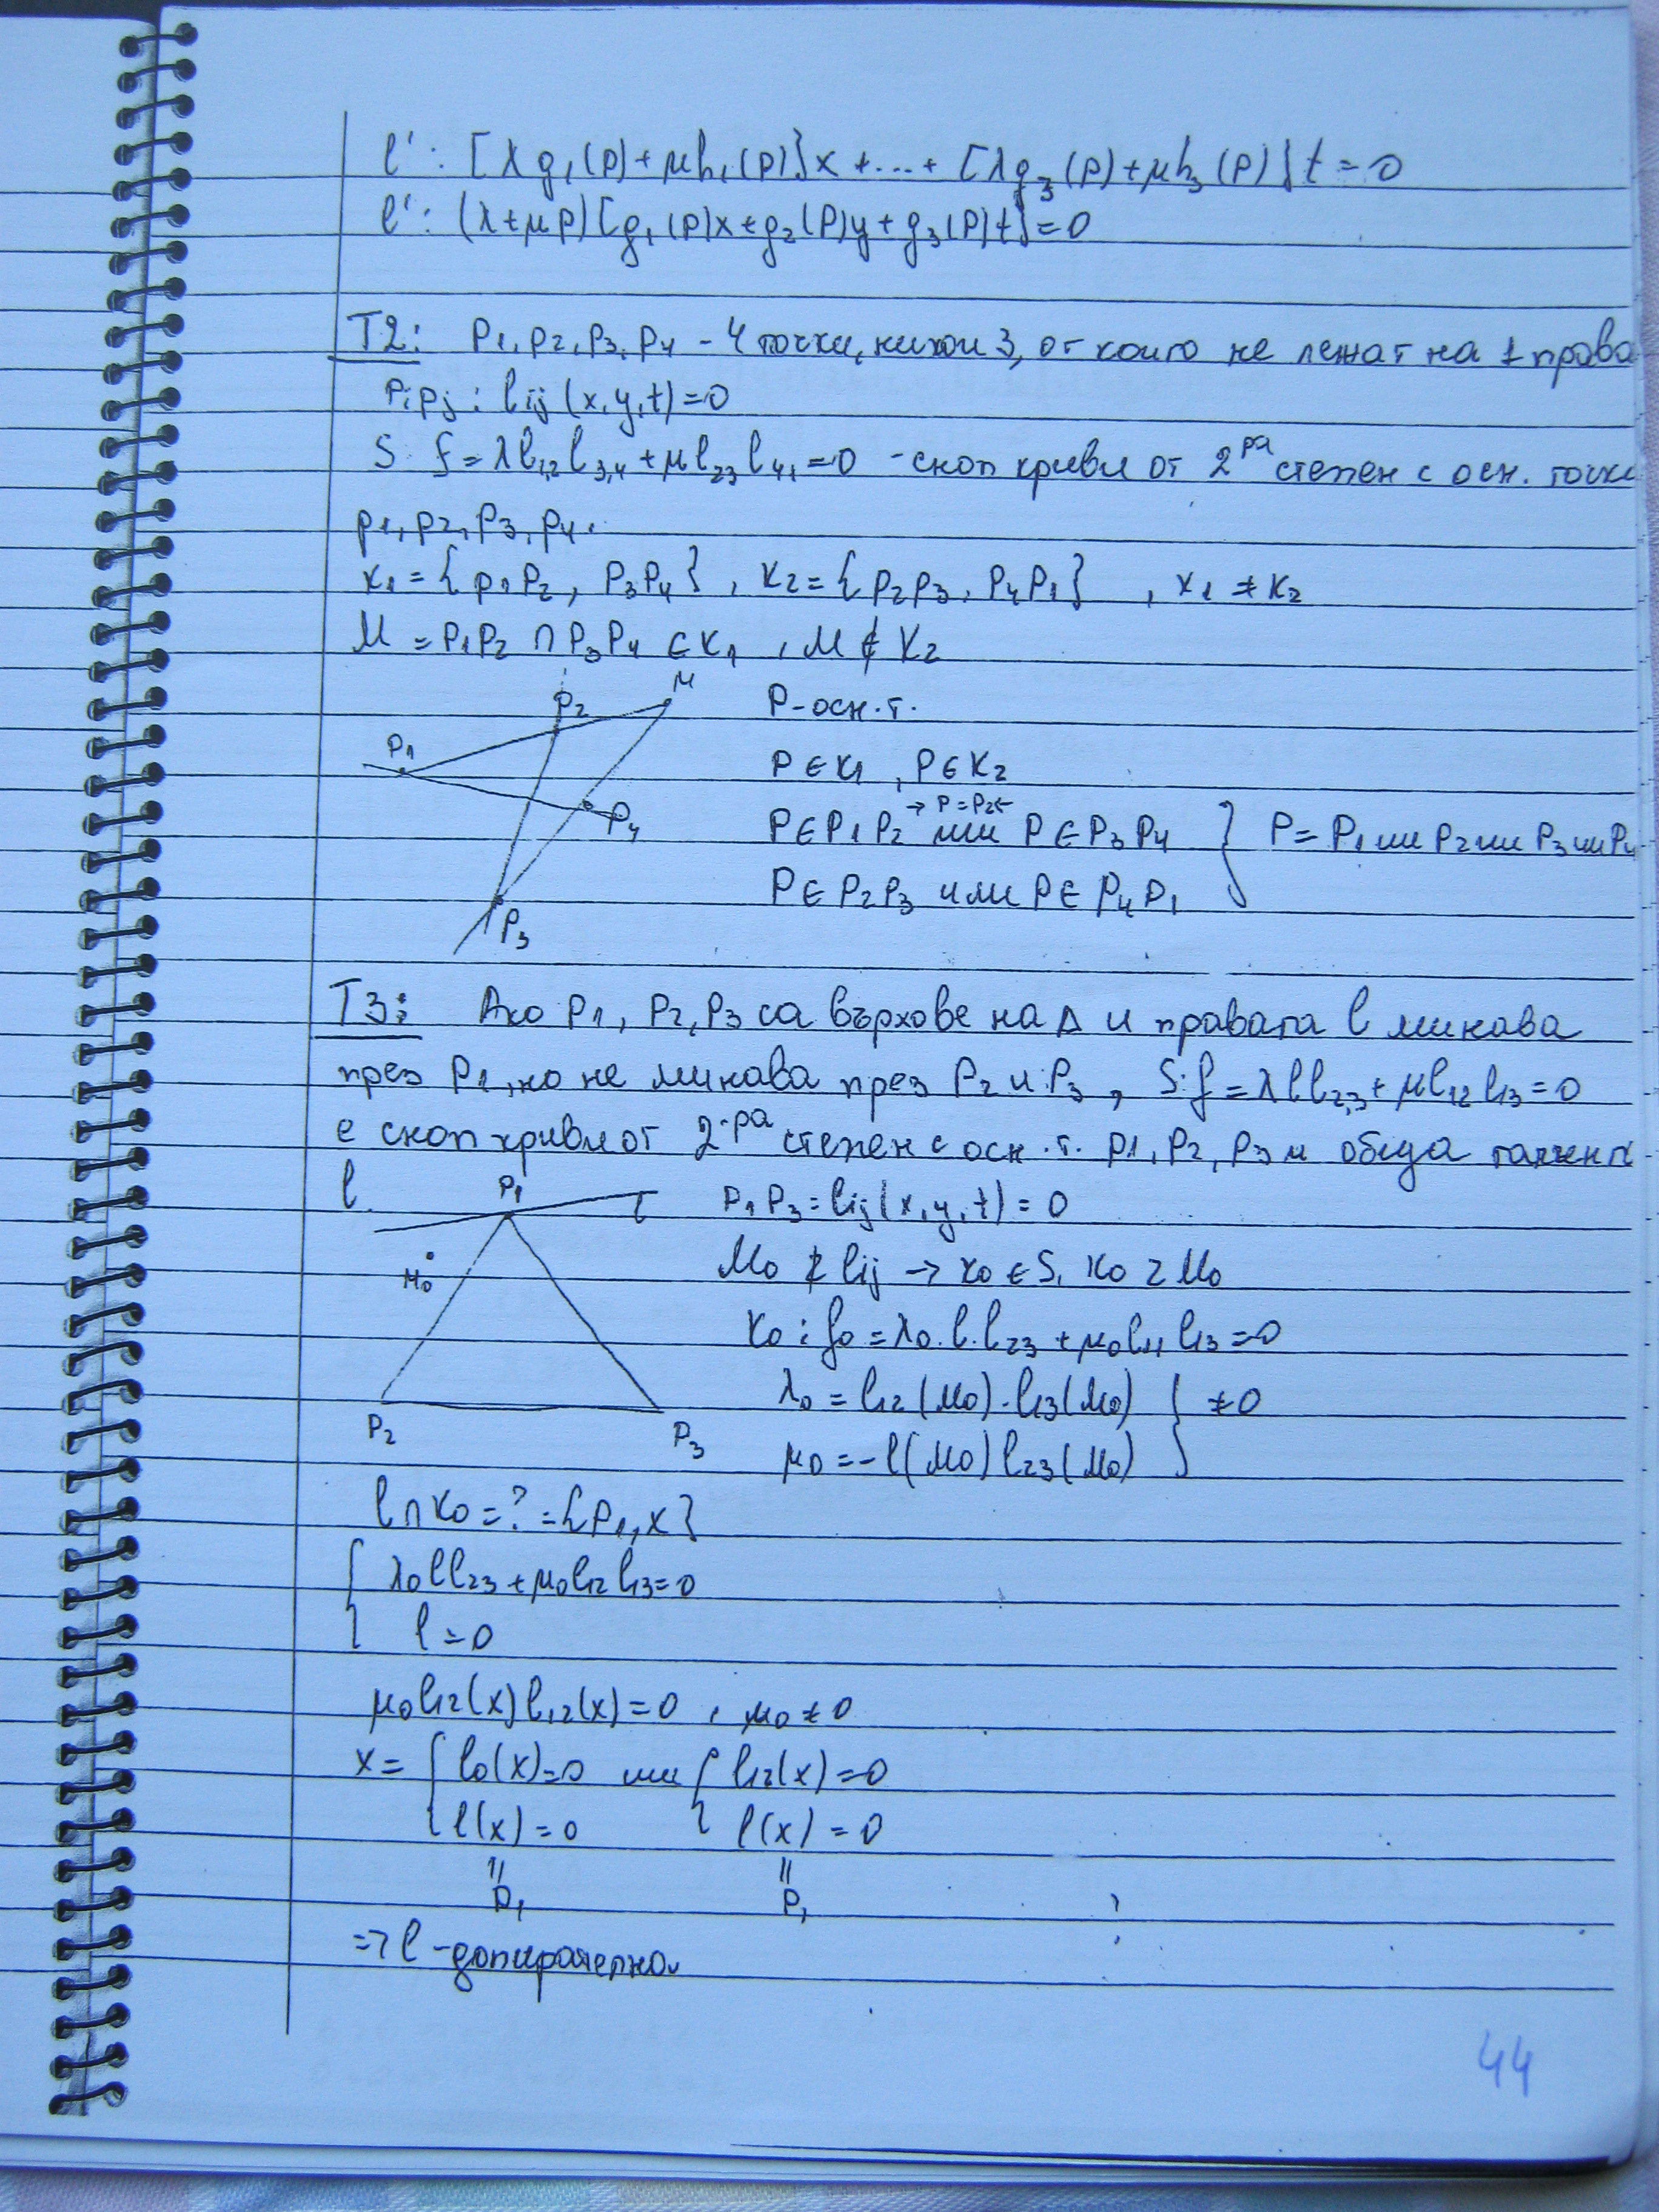 l' : [λg₁(p)+μh₁(p)]x+...+[λg₃(p)+μh₃(p)]t=0
l' : (λ+μp)[g₁(p)x+g₂(p)y+g₃(p)t]=0
T2: P1, P2, P3, P4 - 4 точки, никои 3, от които не лежат на 1 права
PiPj : lij (x,y,t)=0
S f=λl₁₂l₃,₄+μl₂₃l₄₁=0 - сноп криви от 2ра степен с осн. точки
p1, p2, p3, p4.
K₁={P1P2, P3P4}, K₂={P2P3, P4P1}, K₁≠K₂
M=P1P2∩P3P4∈K₁, M∉K₂
P1 P2 M P4 P3
P-осн.т.
P∈K₁, P∈K₂
→P=P2←
P∈P1P2 или P∈P3P4 } P=P1 или P2 или P3 или P4
P∈P2P3 или P∈P4P1
T3: Ако P1, P2, P3 са върхове на Δ и правата l минава
през P1, но не минава през P2 и P3, S:f=λll₂,₃+μl₁₂l₁₃=0
е сноп криви от 2-ра степен с осн.т. P1, P2, P3 и обща
l.
P1 l M₀ P2 P3
P1P3=lij(x,y,t)=0
M₀∉lij→K₀∈S, K₀ZM₀
K₀:f₀=λ₀.l.l₂₃+μ₀l₁₁l₁₃=0
λ₀=l₁₂(M₀).l₁₃(M₀) } ≠0
μ₀=-l(M₀)l₂₃(M₀)
l∩K₀=?={P1,x}
{ λ₀ll₂₃+μ₀l₁₂l₁₃=0
l=0
μ₀l₁₂(x)l₁₂(x)=0, μ₀≠0
x= { l₀(x)=0 или { l₁₂(x)=0
l(x)=0 l(x)=0
|| ||
P₁ P₁
=> l-допирателна.
44